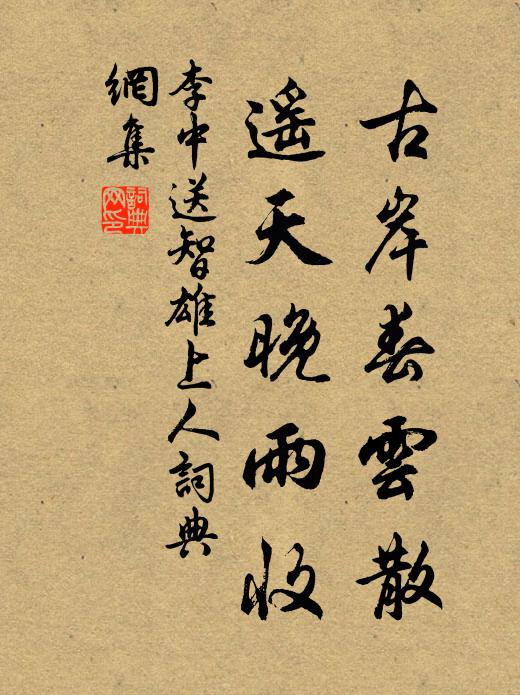 古岸春雲散
遥天晚雨收
李中送智雄上人詞典
網集
詞典
網印